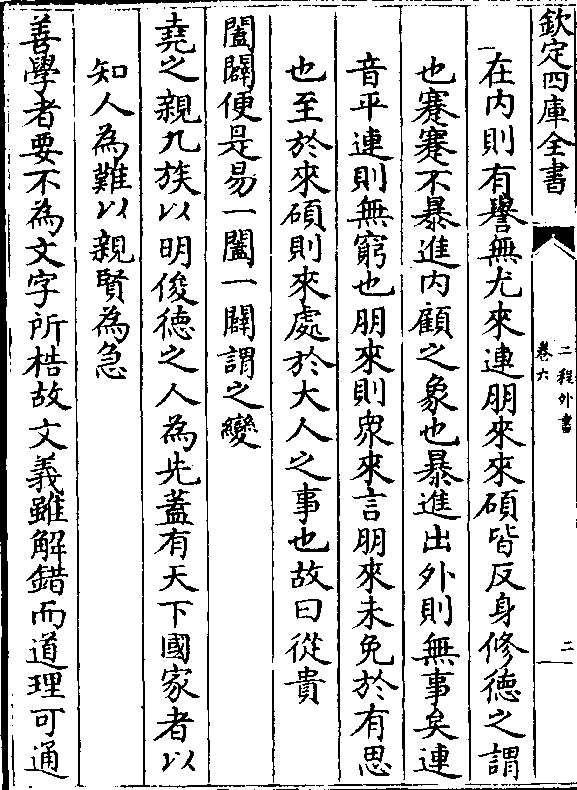 欽定四庫全書
二程外書
卷六
二
在内則有譽無尤來連朋來來碩皆反身修德之謂
也蹇蹇不暴進内顧之象也暴進出外則無事矣連
音平連則無窮也朋來則衆來言朋來未免於有思
也至於來碩則來處於大人之事也故曰從貴
闔闢便是易一闔一闢謂之變
堯之親九族以明俊德之人為先蓋有天下國家者以
知人為難以親賢為急
善學者要不為文字所梏故文義雖解錯而道理可通